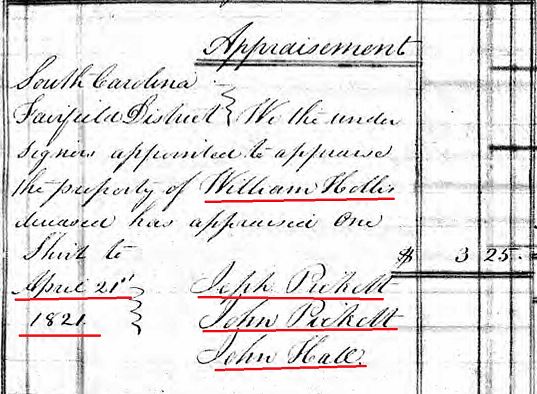 Appraisement
South Carolina
Fairfield District } We the under
signers appointed to appraise
the property of William Hollis
deceased has appraised One
Shirt to $ 3 25
April 21st Jeph Pickett
1821 John Pickett
John Hall